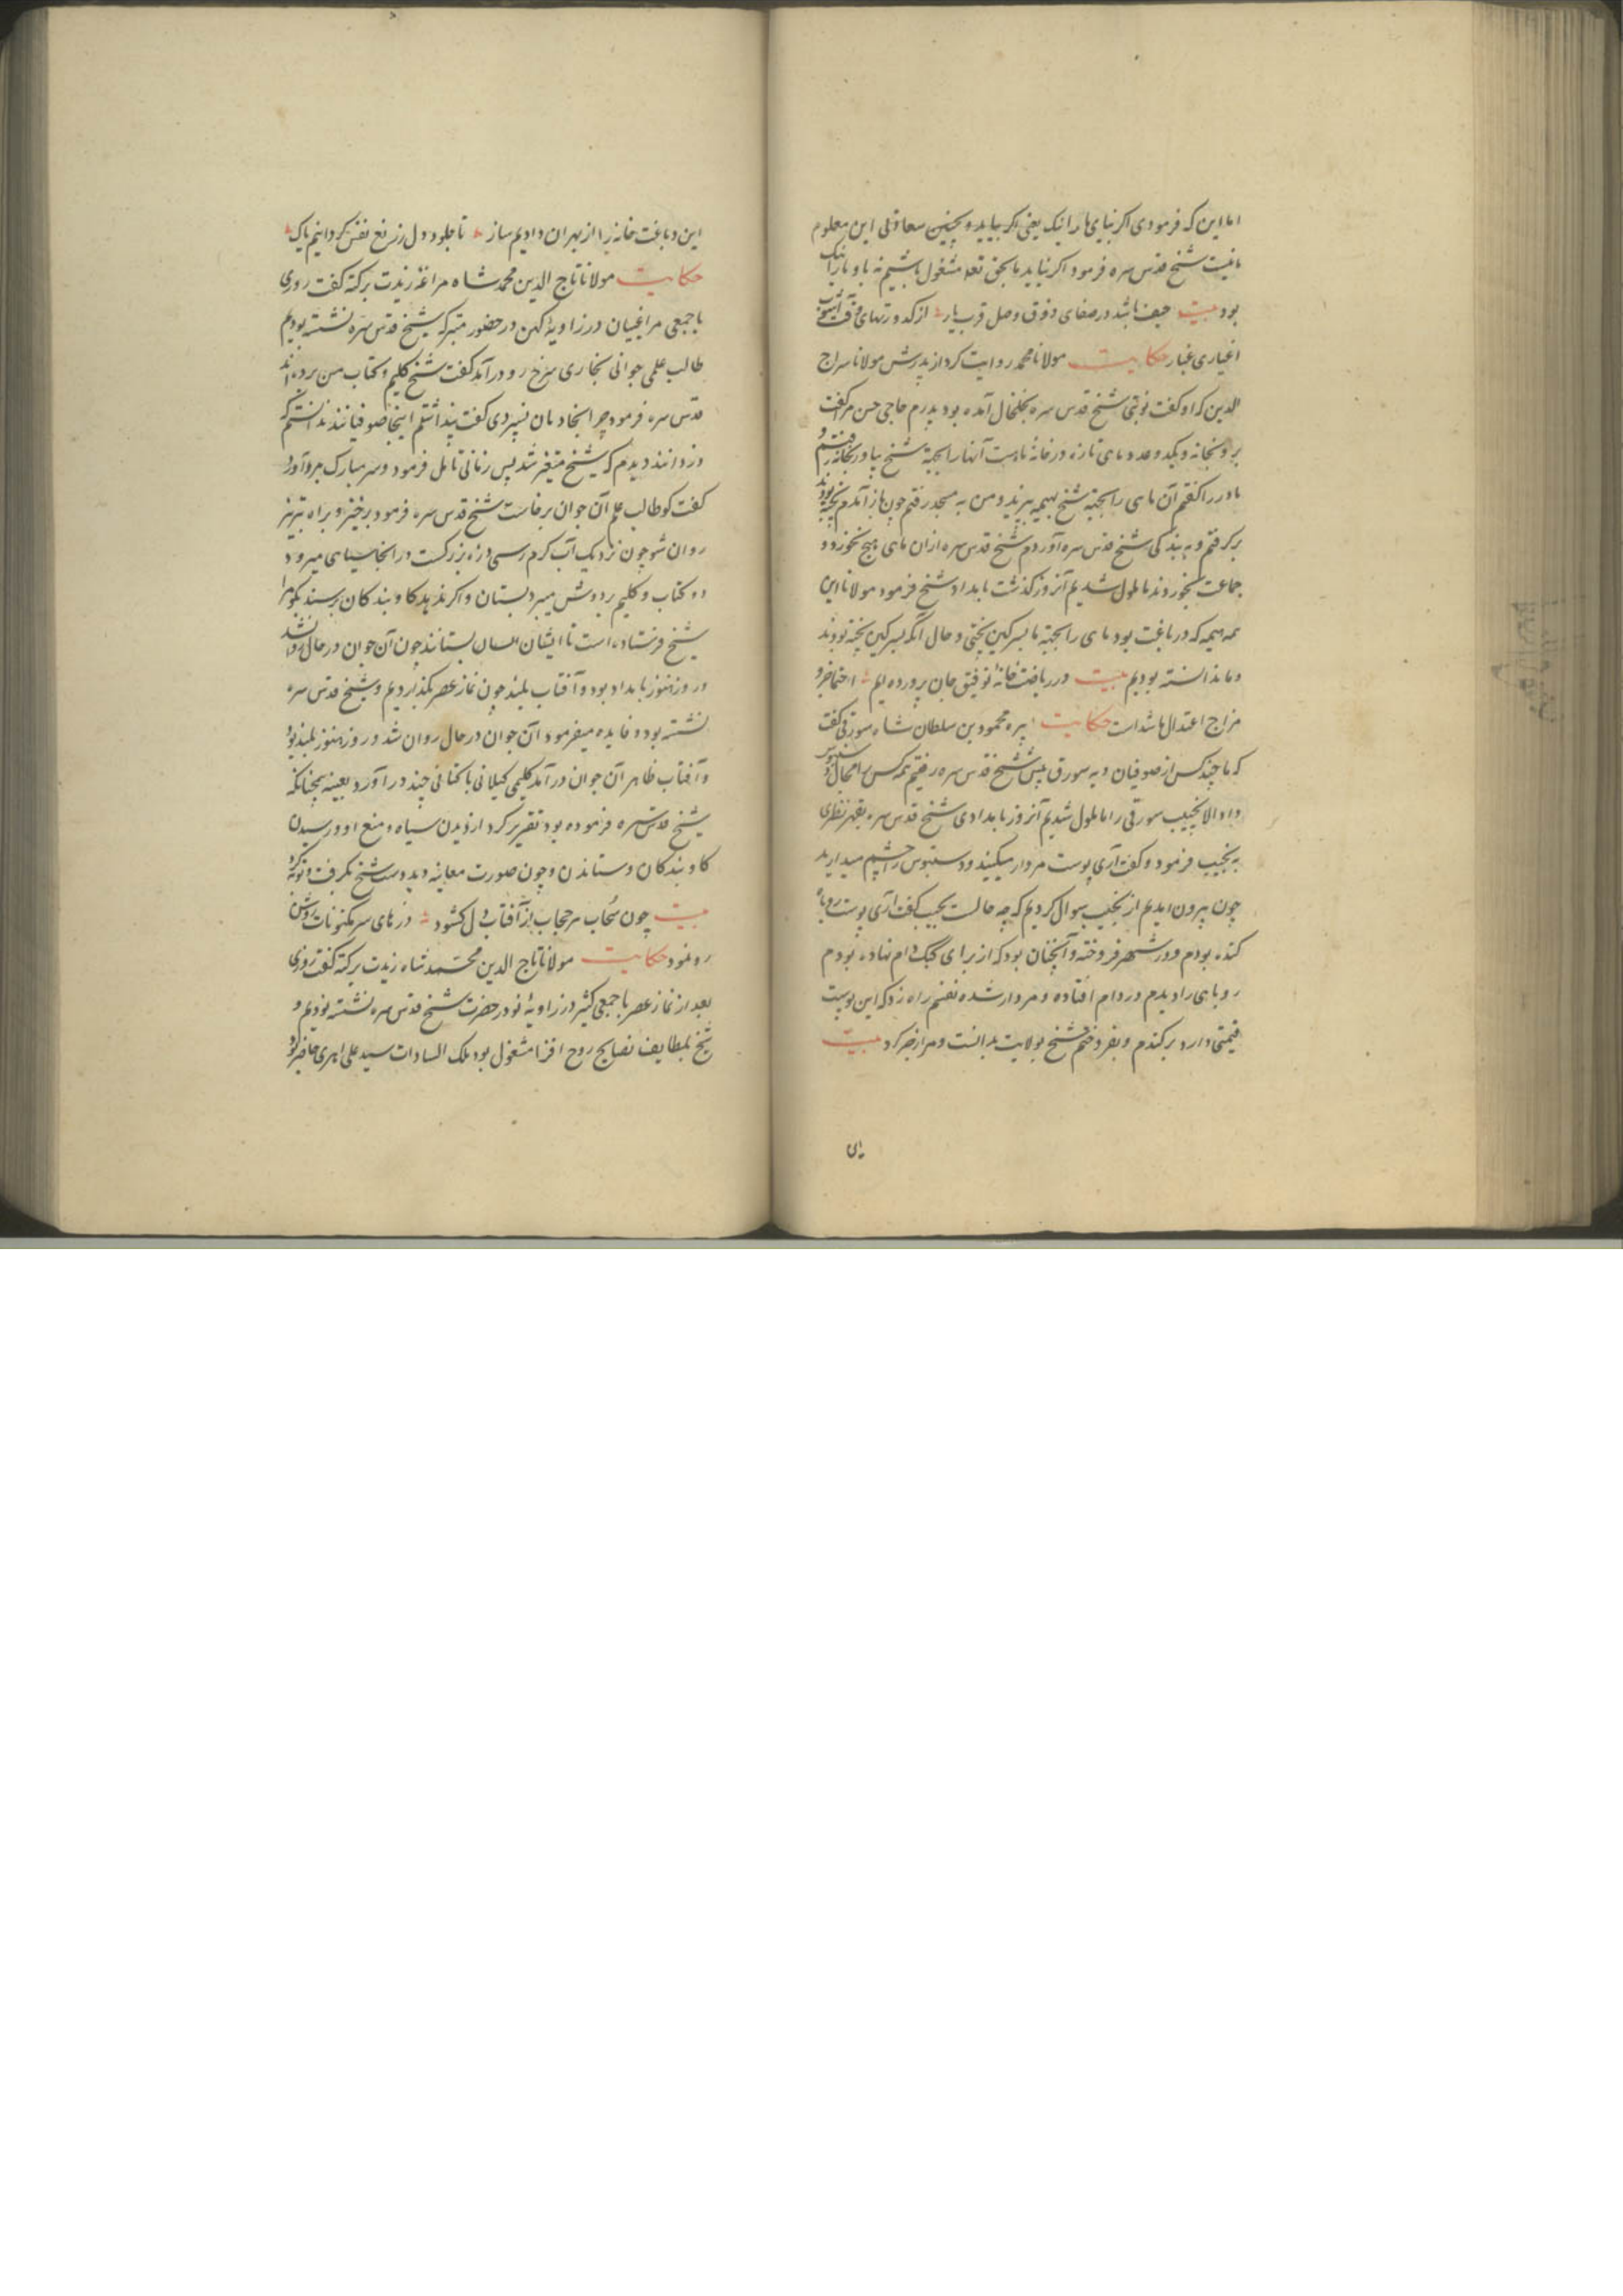 اما این که فرمودی اکر نیای ما را نیک یعنی اکر بیاید و بچنین سعادتی این معلوم
ما نیست شیخ قدس سره فرمود اکر نیاید ما بحق تعلی مشغول باشیم نه با و ما را نیک
بود بیت حیف باشد در صفای ذوق وصل قرب یار از کدورتهای وقت
اغیاری غبار حکایت مولانا محمد روایت کرد از پدرش مولانا سراج
الدین که او کفت نوبتی شیخ قدس سره بخلخال آمده بود پدرم حاجی حسن مرا کفت
برو بخانه و یکدو عدد ماهی تازه در خانهٔ ماست آنها را بجهة شیخ بیاور بخانه رفتم و
مادر را کفتم آن ماهی را بجهة شیخ بهیمه بپزید و من به مسجد رفتم چون باز آمدم پخته بودند
برکرفتم و به بندکی شیخ قدس سره آوردم شیخ قدس سره از ان ماهی هیچ نخورد و
جماعت بخوردند ما ملول شدیم آنروز کذشت بامداد شیخ فرمود مولانا این
همه هیمه که در باغت بود ماهی را بجهة ما بسرکین پختی و حال آنکه بسرکین پخته بودند
و ما ندانسته بودیم بیت در ریاضت خانهٔ توفیق جان پرورده ایم احتما خرو
مزاج اعتدال ما شد است حکایت پیره محمود بن سلطان شاه سورقی کفت
که با چند کس از صوفیان دیه سورق پیش شیخ قدس سره رفتیم همه کس را مجال دستبوس
داد الا نجیب سورقی را ما ملول شدیم آنروز بامدادی شیخ قدس سره بقهر نظری
به نجیب فرمود و کفت آری پوست مردار میکنید و دستبوس را چشم میدارید
چون بیرون امدیم از نجیب سوال کردیم که چه حالست نجیب کفت آری پوست روباه
کنده بودم و در شهر فروخته و آنچنان بود که از برای کبک دام نهاده بودم
روباهی را دیدم در دام افتاده و مردار شده نفسم راه زد که این پوست
قیمتی دارد برکندم و بفروختم شیخ بولایت بدانست و مرا زجر کرد بیت
این
این دباغت خانه را از بهر ان دادیم ساز تا جلود دل ز رنغ نفس کردانیم پاک
حکایت مولانا تاج الدین محمد شاه مراغه زیدت برکته کفت روزی
با جمعی مراغیان در زاویهٔ کهن در حضور متبرکه شیخ قدس سره نشسته بودیم
طالب علمی جوانی بخاری سرخ رو درآمد کفت شیخ کلیم و کتاب من برده اند
قدس سره فرمود چرا بخادمان نسپردی کفت پنداشتم اینجا صوفیانند ندانستم که
دزدانند دیدم که شیخ متغیر شد پس زمانی تامل فرمود و سر مبارک برآورد
کفت کو طالب علم آن جوان برخاست شیخ قدس سره فرمود برخیز و براه تبریز
روان شو چون نزدیک آب کرم رسی دره بزرکست در انجا سیاهی میرود
دو کتاب و کلیم بر دوش میبرد بستان و اکر ندهد کاو بندکان برسند بکو مرا
شیخ فرستاده است تا ایشان بستانند چون آن جوان در حال روانه شد
و روز هنوز بامداد بود و آفتاب بلند چون نماز عصر بکذاردیم و شیخ قدس سره
نشسته بود و فایده میفرمود آن جوان در حال روان شد و روز هنوز بلند بود
و آفتاب ظاهر آن جوان درآمد کلیمی کیلانی با کتابی چند درآورد بعینه همچنانکه
شیخ قدس سره فرموده بود تقریر کرد از دیدن سیاه و منع او و رسیدن
کاو بندکان و ستاندن و چون صورت معاینه دید دست شیخ بکرفت و توبه کرد
بیت چون سحاب هر حجاب از آفتاب دل کشود درهای سر مکنونات روشن
رو نمود حکایت مولانا تاج الدین محمد شاه زیدت برکته کفت روزی
بعد از نماز عصر با جمعی کثیر در زاویهٔ نو در حضرت شیخ قدس سره نشسته بودیم و
شیخ بلطایف نصایح روح افزا مشغول بود ملک السادات سید علی اهری حاضر بود